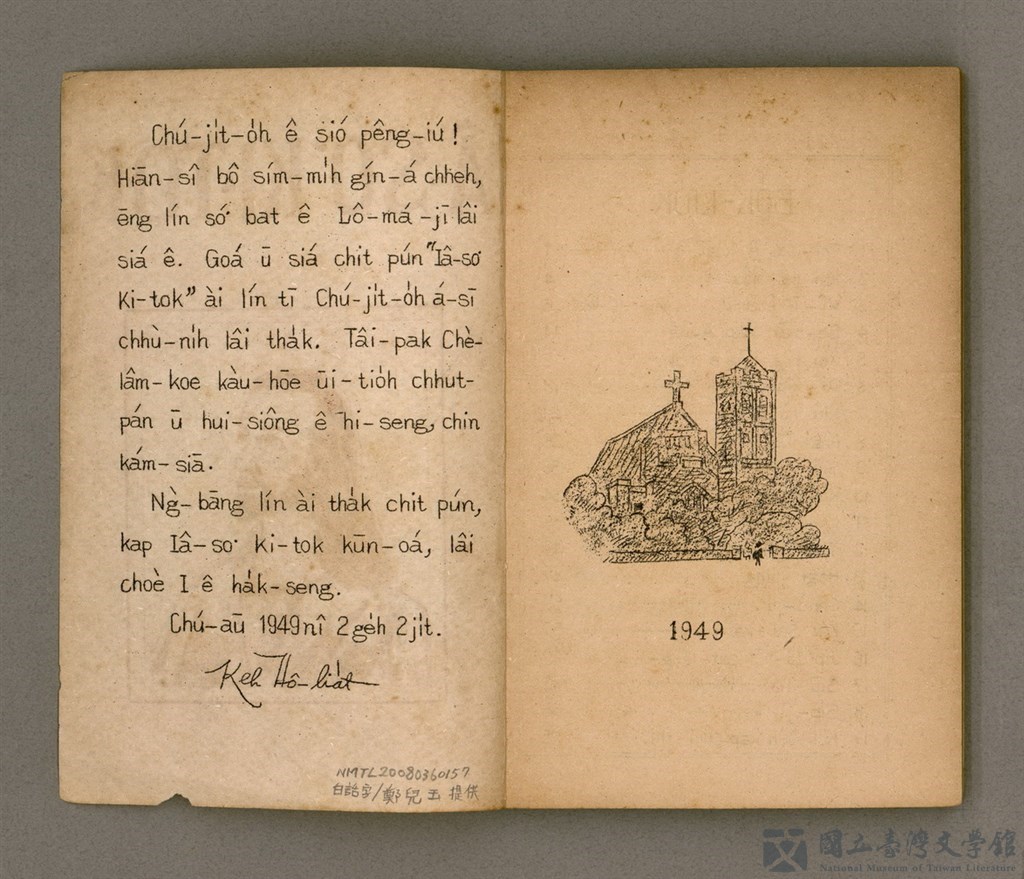 Chú-ji̍t-o̍h ê sió pêng-iú!
Hiān-sî bô sím-mi̍h gín-á chheh,
ēng lín só͘ bat ê Lô-má-jī lâi
siá ê. Goá ū siá chit pún "Iâ-so͘
Ki-tok" ài lín tī Chú-ji̍t-o̍h á-sī
chhù-ni̍h lâi tha̍k. Tâi-pak Chè-
lâm-koe kàu-hōe ūi-tio̍h chhut-
pán ū hui-siông ê hi-seng, chin
kám-siā.
Ǹg-bāng lín ài tha̍k chit pún,
kap Iâ-so͘ Ki-tok kūn-oá, lâi
choè I ê ha̍k-seng.
Chú-aū 1949 nî 2 ge̍h 2 ji̍t.
Keh Hô-lia̍t
NMTL20080360157
白話字/鄭兒玉 提供
1949
國立臺灣文學館
National Museum of Taiwan Literature